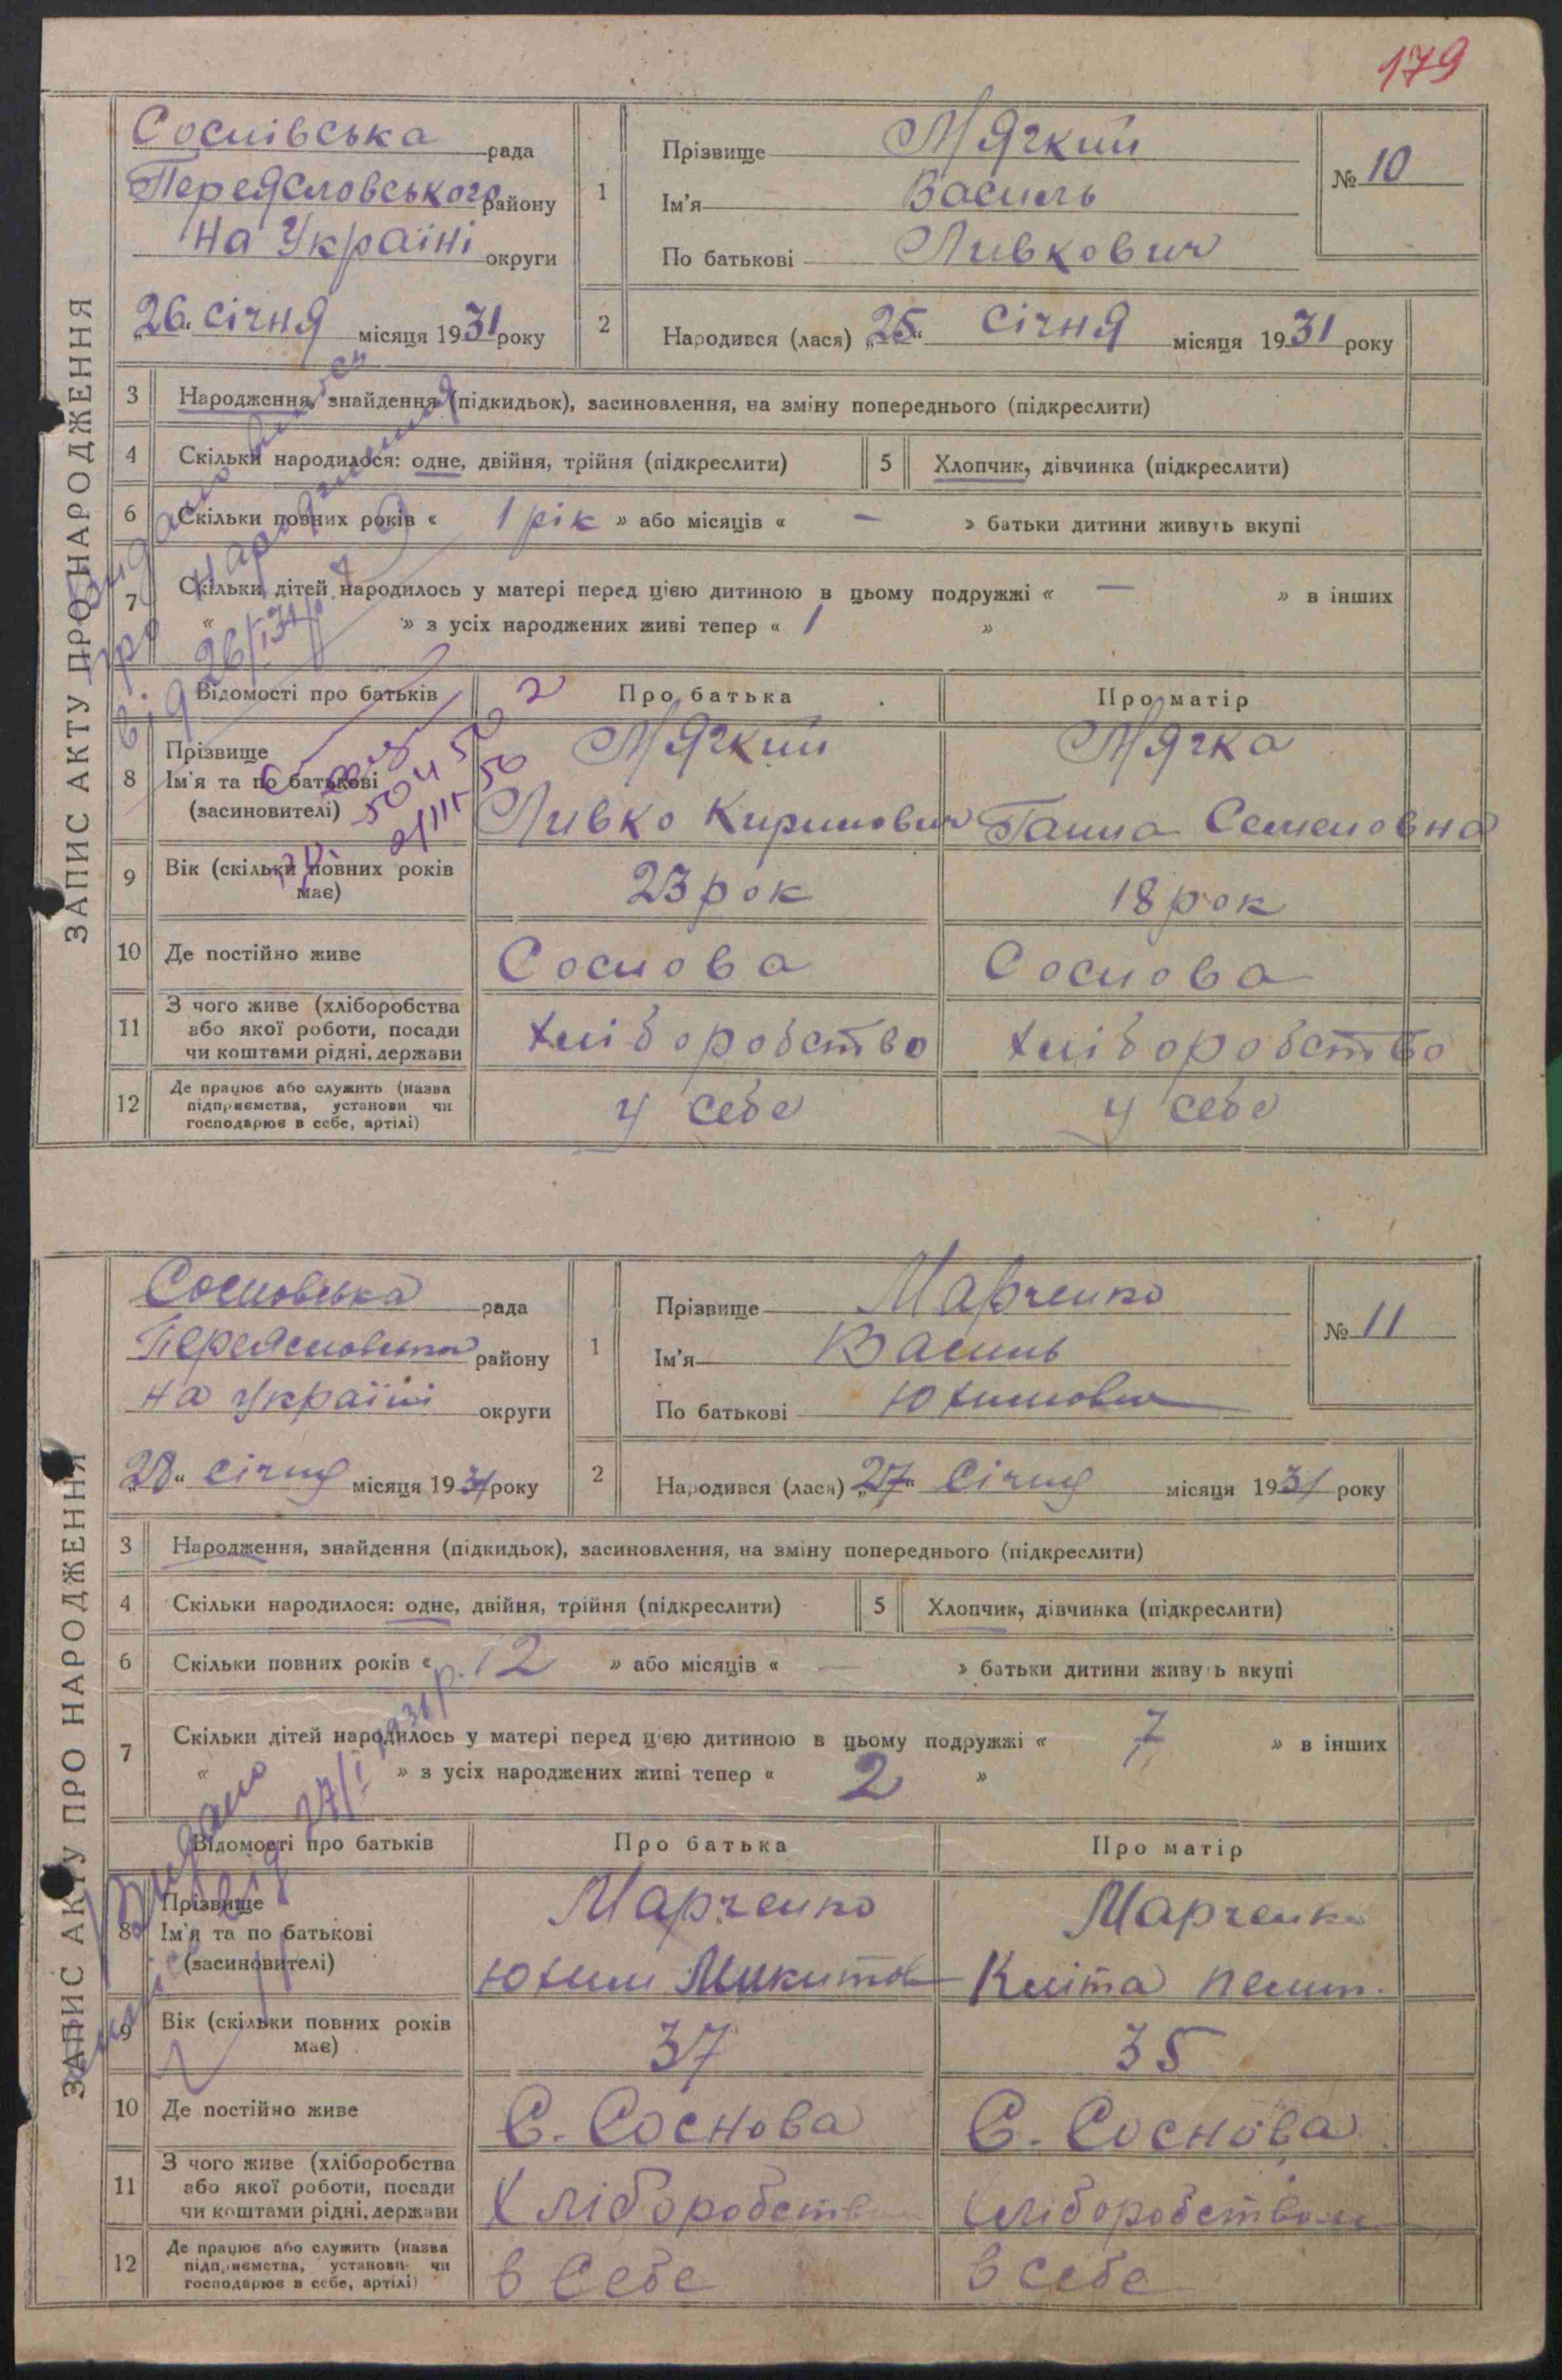 179
ЗАПИС АКТУ ПРО НАРОДЖЕННЯ
Соснівська рада
Переясловського району
на Україні округи
„26." січня місяця 1931 року
1
Прізвище Мягкий
Ім'я Василь
По батькові Ливкович
№ 10
2
Народився (лася) „25" січня місяця 1931 року
3 Народження, знайдення (підкидьок), засиновлення, на зміну попереднього (підкреслити)
4 Скільки народилося: одне, двійня, трійня (підкреслити) 5 Хлопчик, дівчинка (підкреслити)
6 Скільки повних років « 1 рік » або місяців « — » батьки дитини живуть вкупі
7 Скільки дітей народилось у матері перед цією дитиною в цьому подружжі « — » в інших
« » з усіх народжених живі тепер « 1 »
Видано
про народження
від 26/I 31 р.
Відомості про батьків Про батька Про матір
8 Прізвище Мягкий Мягка
Ім'я та по батькові
(засиновителі) Ливко Кирилович Ганна Семеновна
9 Вік (скільки повних років має) 23 рок 18 рок
10 Де постійно живе Соснова Соснова
11 З чого живе (хліборобства
або якої роботи, посади
чи коштами рідні, держави хліборобство хліборобство
12 Де працює або служить (назва
підприємства, установи чи
господарює в себе, артілі) у себе у себе
ЗАПИС АКТУ ПРО НАРОДЖЕННЯ
Сосновська рада
району
на україні округи
„28" січня місяця 1931 року
1
Прізвище Марченко
Ім'я Василь
По батькові Юхимович
№ 11
2
Народився (лася) „27" Січня місяця 1931 року
3 Народження, знайдення (підкидьок), засиновлення, на зміну попереднього (підкреслити)
4 Скільки народилося: одне, двійня, трійня (підкреслити) 5 Хлопчик, дівчинка (підкреслити)
6 Скільки повних років « 12 » або місяців « — » батьки дитини живуть вкупі
7 Скільки дітей народилось у матері перед цією дитиною в цьому подружжі « 7 » в інших
« » з усіх народжених живі тепер « 2 »
Видано
від 27/I 1931 р.
Відомості про батьків Про батька Про матір
8 Прізвище Марченко Марченко
Ім'я та по батькові
(засиновителі) Юхим Микитов
9 Вік (скільки повних років має) 37 35
10 Де постійно живе С. Соснова С. Соснова
11 З чого живе (хліборобства
або якої роботи, посади
чи коштами рідні, держави Хліборобством хліборобством
12 Де працює або служить (назва
підприємства, установи чи
господарює в себе, артілі) в себе в себе